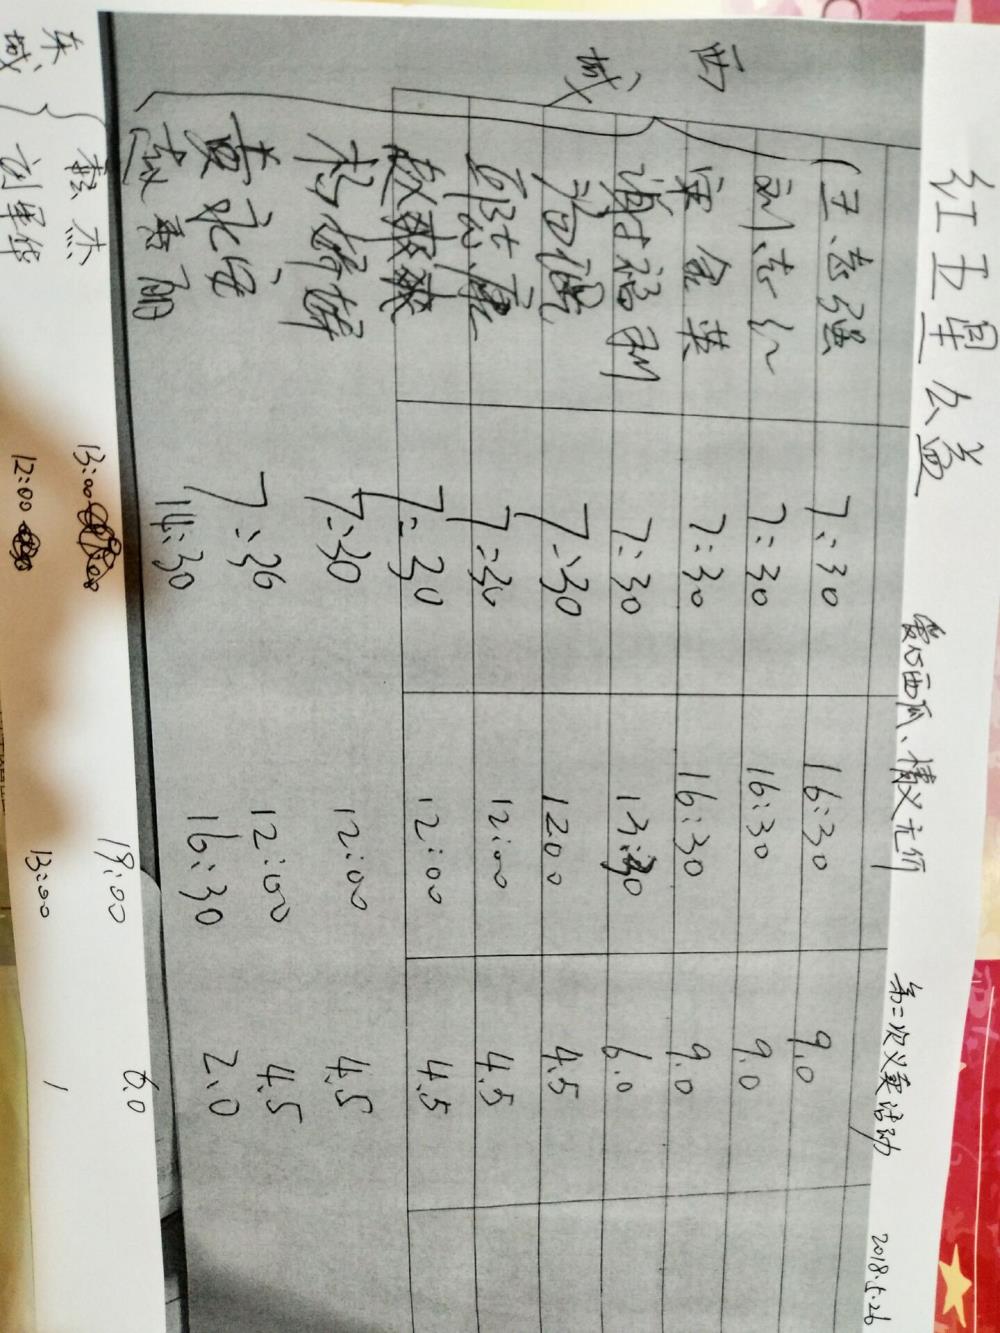 红卫星公益 爱心西瓜、情义无价 第二次义卖活动 2018.5.26
西城
王志强 7:30 16:30 9.0
刘志红 7:30 16:30 9.0
宋金英 7:30 16:30 9.0
谢福利 7:30 13:30 6.0
7:30 1200 4.5
7:30 12:00 4.5
赵爽爽 7:30 12:00 4.5
7:30 12:00 4.5
黄永安 7:30 12:00 4.5
14:30 16:30 2.0
东城
杰 13:00 19:00 6.0
刘军华 12:00 13:00 1